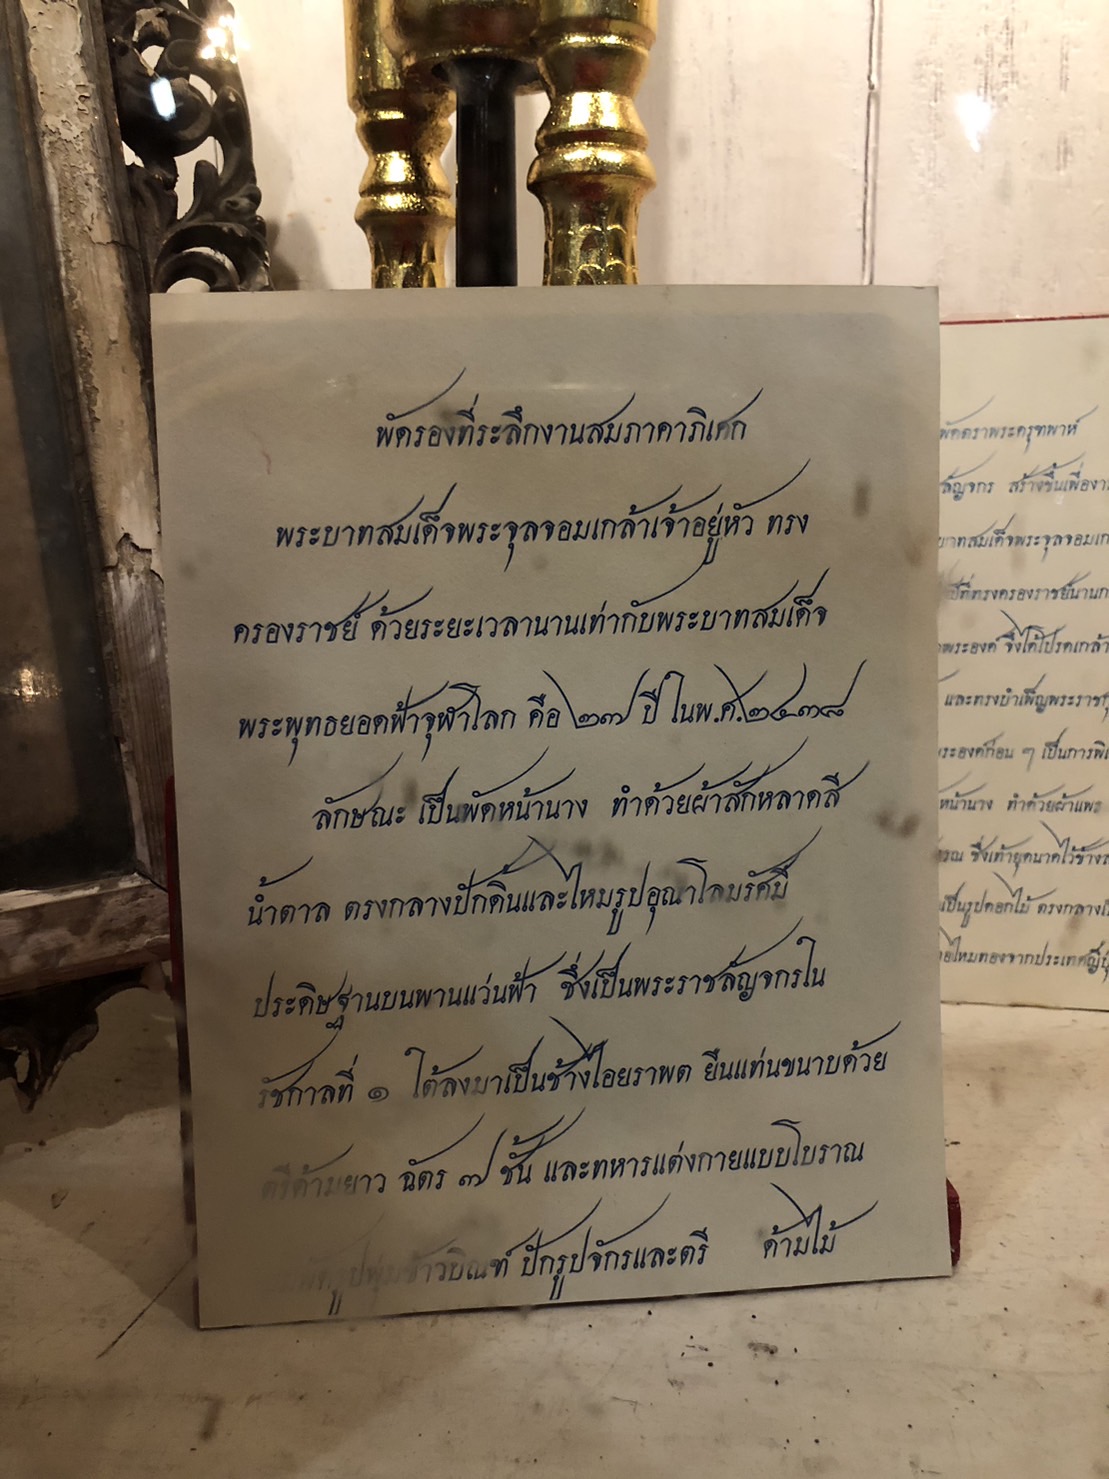 พัดรองที่ระลึกงานสมภาคาภิเศก
พระบาทสมเด็จพระจุลจอมเกล้าเจ้าอยู่หัว ทรง
ครองราชย์ ด้วยระยะเวลานานเท่ากับพระบาทสมเด็จ
พระพุทธยอดฟ้าจุฬาโลก คือ ๒๗ ปี ในพ.ศ.๒๔๓๘
ลักษณะ เป็นพัดหน้านาง ทำด้วยผ้าสักหลาดสี
น้ำตาล ตรงกลางปักดิ้นและไหมรูปอุณาโลมรัศมี
ประดิษฐานบนพานแว่นฟ้า ซึ่งเป็นพระราชลัญจกรใน
รัชกาลที่ ๑ ใต้ลงมาเป็นช้างไอยราพต ยืนแท่นขนาบด้วย
ตรีด้ามยาว ฉัตร ๗ ชั้น และทหารแต่งกายแบบโบราณ
ปักรูปจักรและตรี ด้ามไม้
พัดตราพระครุฑพาห์
ลัญจกร สร้างขึ้นเพื่องา
บาทสมเด็จพระจุลจอมเก
ปีที่ทรงครองราชย์นานก
พระองค์ จึงได้โปรดเกล้า
และทรงบำเพ็ญพระราชกุ
ระองค์ก่อน ๆ เป็นการพิเ
หน้านาง ทำด้วยผ้าแพร
รณ ซึ่งเท้ายุดนาคไว้ข้าง
เป็นรูปดอกไม้ ตรงกลาง
ไหมทองจากประเทศญี่ปุ